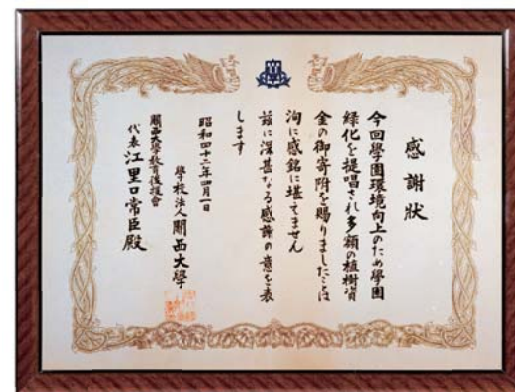 感謝狀
今回學園環境向上のため學園
緑化を提唱され多額の植樹資
金の御寄附を賜りましたことは
洵に感銘に堪てません
茲に深甚なる感謝の意を表
します
昭和四十二年四月一日
學校法人關西大學
關西大學教育後援會
代表江里口常臣殿